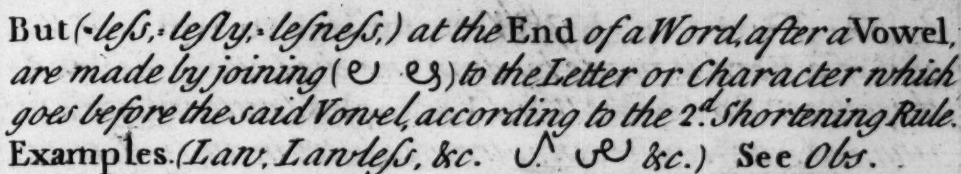 But (-leſs, -leſly, -leſneſs,) at the End of a Word, after a Vowel,
are made by joining ( ) to the Letter or Character which
goes before the said Vowel, according to the 2.d Shortening Rule.
Examples. (Law, Lawleſs, &c. &c.) See Obs.